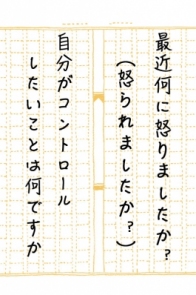 最近何に怒りましたか?
(怒られましたか?)
自分がコントロール
したいことは何ですか